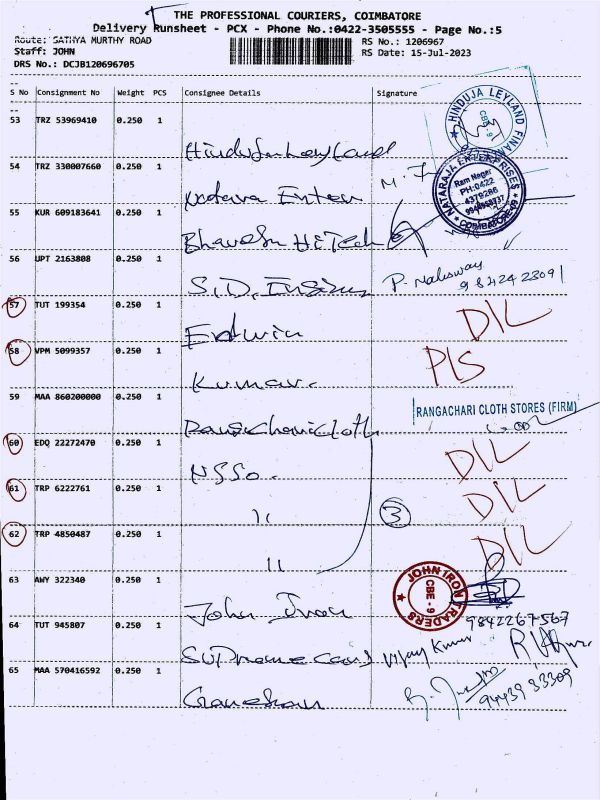 THE PROFESSIONAL COURIERS, COIMBATORE
Delivery Runsheet - PCX - Phone No.:0422-3505555 - Page No.:5
Route: SATHYA MURTHY ROAD
Staff: JOHN
DRS No.: DCJB120696705
RS No.: 1206967
RS Date: 15-Jul-2023
S No Consignment No Weight PCS Consignee Details Signature
HINDUJA LEYLAND FINAN
CBE-9
53 TRZ 53969410 0.250 1
54 TRZ 330007660 0.250 1
NATARAJA ENTERPRISES
Ram Nagar
PH:0422
4379286
COIMBATORE-09
55 KUR 609183641 0.250 1
Bhavesh HiTech
56 UPT 2163808 0.250 1
S.D.
P.
98424 23091
57 TUT 199354 0.250 1 D/L
Edwin
58 VPM 5099357 0.250 1 P/S
Kumar.
59 MAA 860200000 0.250 1
RANGACHARI CLOTH STORES (FIRM)
60 EDQ 22272470 0.250 1 D/L
NSSO.
61 TRP 6222761 0.250 1 D/L
11
3
62 TRP 4850487 0.250 1 D/L
11
63 AWY 322340 0.250 1
JOHN IRON TRADERS
CBE - 9
John Iron
9842267567
64 TUT 945807 0.250 1
Supreme Vijay Kumar
65 MAA 570416592 0.250 1
9443933309